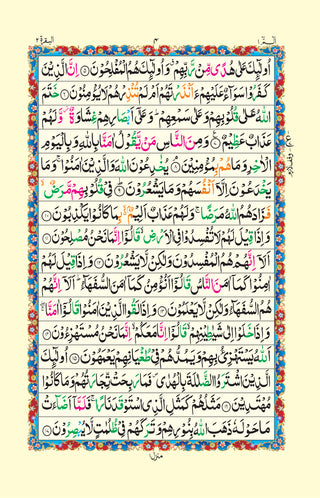 البقرة ٢ ٤ الٓمّٓ ١
اُولٰٓئِكَ عَلٰى هُدًى مِّنْ رَّبِّهِمْ ۗ وَاُولٰٓئِكَ هُمُ الْمُفْلِحُوْنَ ۝ اِنَّ الَّذِيْنَ
كَفَرُوْا سَوَآءٌ عَلَيْهِمْ ءَاَنْذَرْتَهُمْ اَمْ لَمْ تُنْذِرْهُمْ لَا يُؤْمِنُوْنَ ۝ خَتَمَ
اللّٰهُ عَلٰى قُلُوْبِهِمْ وَعَلٰى سَمْعِهِمْ ؕ وَعَلٰٓى اَبْصَارِهِمْ غِشَاوَةٌ ؗ وَّلَهُمْ
عَذَابٌ عَظِيْمٌ ۝ وَمِنَ النَّاسِ مَنْ يَّقُوْلُ اٰمَنَّا بِاللّٰهِ وَبِالْيَوْمِ
الْاٰخِرِ وَمَا هُمْ بِمُؤْمِنِيْنَ ۝ يُخٰدِعُوْنَ اللّٰهَ وَالَّذِيْنَ اٰمَنُوْا ۚ وَمَا
يَخْدَعُوْنَ اِلَّآ اَنْفُسَهُمْ وَمَا يَشْعُرُوْنَ ۝ فِيْ قُلُوْبِهِمْ مَّرَضٌ ۙ
فَزَادَهُمُ اللّٰهُ مَرَضًا ۚ وَلَهُمْ عَذَابٌ اَلِيْمٌۢ ۙ بِمَا كَانُوْا يَكْذِبُوْنَ ۝
وَاِذَا قِيْلَ لَهُمْ لَا تُفْسِدُوْا فِى الْاَرْضِ ۙ قَالُوْٓا اِنَّمَا نَحْنُ مُصْلِحُوْنَ ۝
اَلَآ اِنَّهُمْ هُمُ الْمُفْسِدُوْنَ وَلٰكِنْ لَّا يَشْعُرُوْنَ ۝ وَاِذَا قِيْلَ لَهُمْ
اٰمِنُوْا كَمَآ اٰمَنَ النَّاسُ قَالُوْٓا اَنُؤْمِنُ كَمَآ اٰمَنَ السُّفَهَآءُ ؕ اَلَآ اِنَّهُمْ
هُمُ السُّفَهَآءُ وَلٰكِنْ لَّا يَعْلَمُوْنَ ۝ وَاِذَا لَقُوا الَّذِيْنَ اٰمَنُوْا قَالُوْٓا اٰمَنَّا ۖۚ
وَاِذَا خَلَوْا اِلٰى شَيٰطِيْنِهِمْ ۙ قَالُوْٓا اِنَّا مَعَكُمْ ۙ اِنَّمَا نَحْنُ مُسْتَهْزِءُوْنَ ۝
اَللّٰهُ يَسْتَهْزِئُ بِهِمْ وَيَمُدُّهُمْ فِيْ طُغْيَانِهِمْ يَعْمَهُوْنَ ۝ اُولٰٓئِكَ
الَّذِيْنَ اشْتَرَوُا الضَّلٰلَةَ بِالْهُدٰى ۪ فَمَا رَبِحَتْ تِّجَارَتُهُمْ وَمَا كَانُوْا
مُهْتَدِيْنَ ۝ مَثَلُهُمْ كَمَثَلِ الَّذِى اسْتَوْقَدَ نَارًا ۚ فَلَمَّآ اَضَآءَتْ
مَا حَوْلَهٗ ذَهَبَ اللّٰهُ بِنُوْرِهِمْ وَتَرَكَهُمْ فِيْ ظُلُمٰتٍ لَّا يُبْصِرُوْنَ ۝
منزل